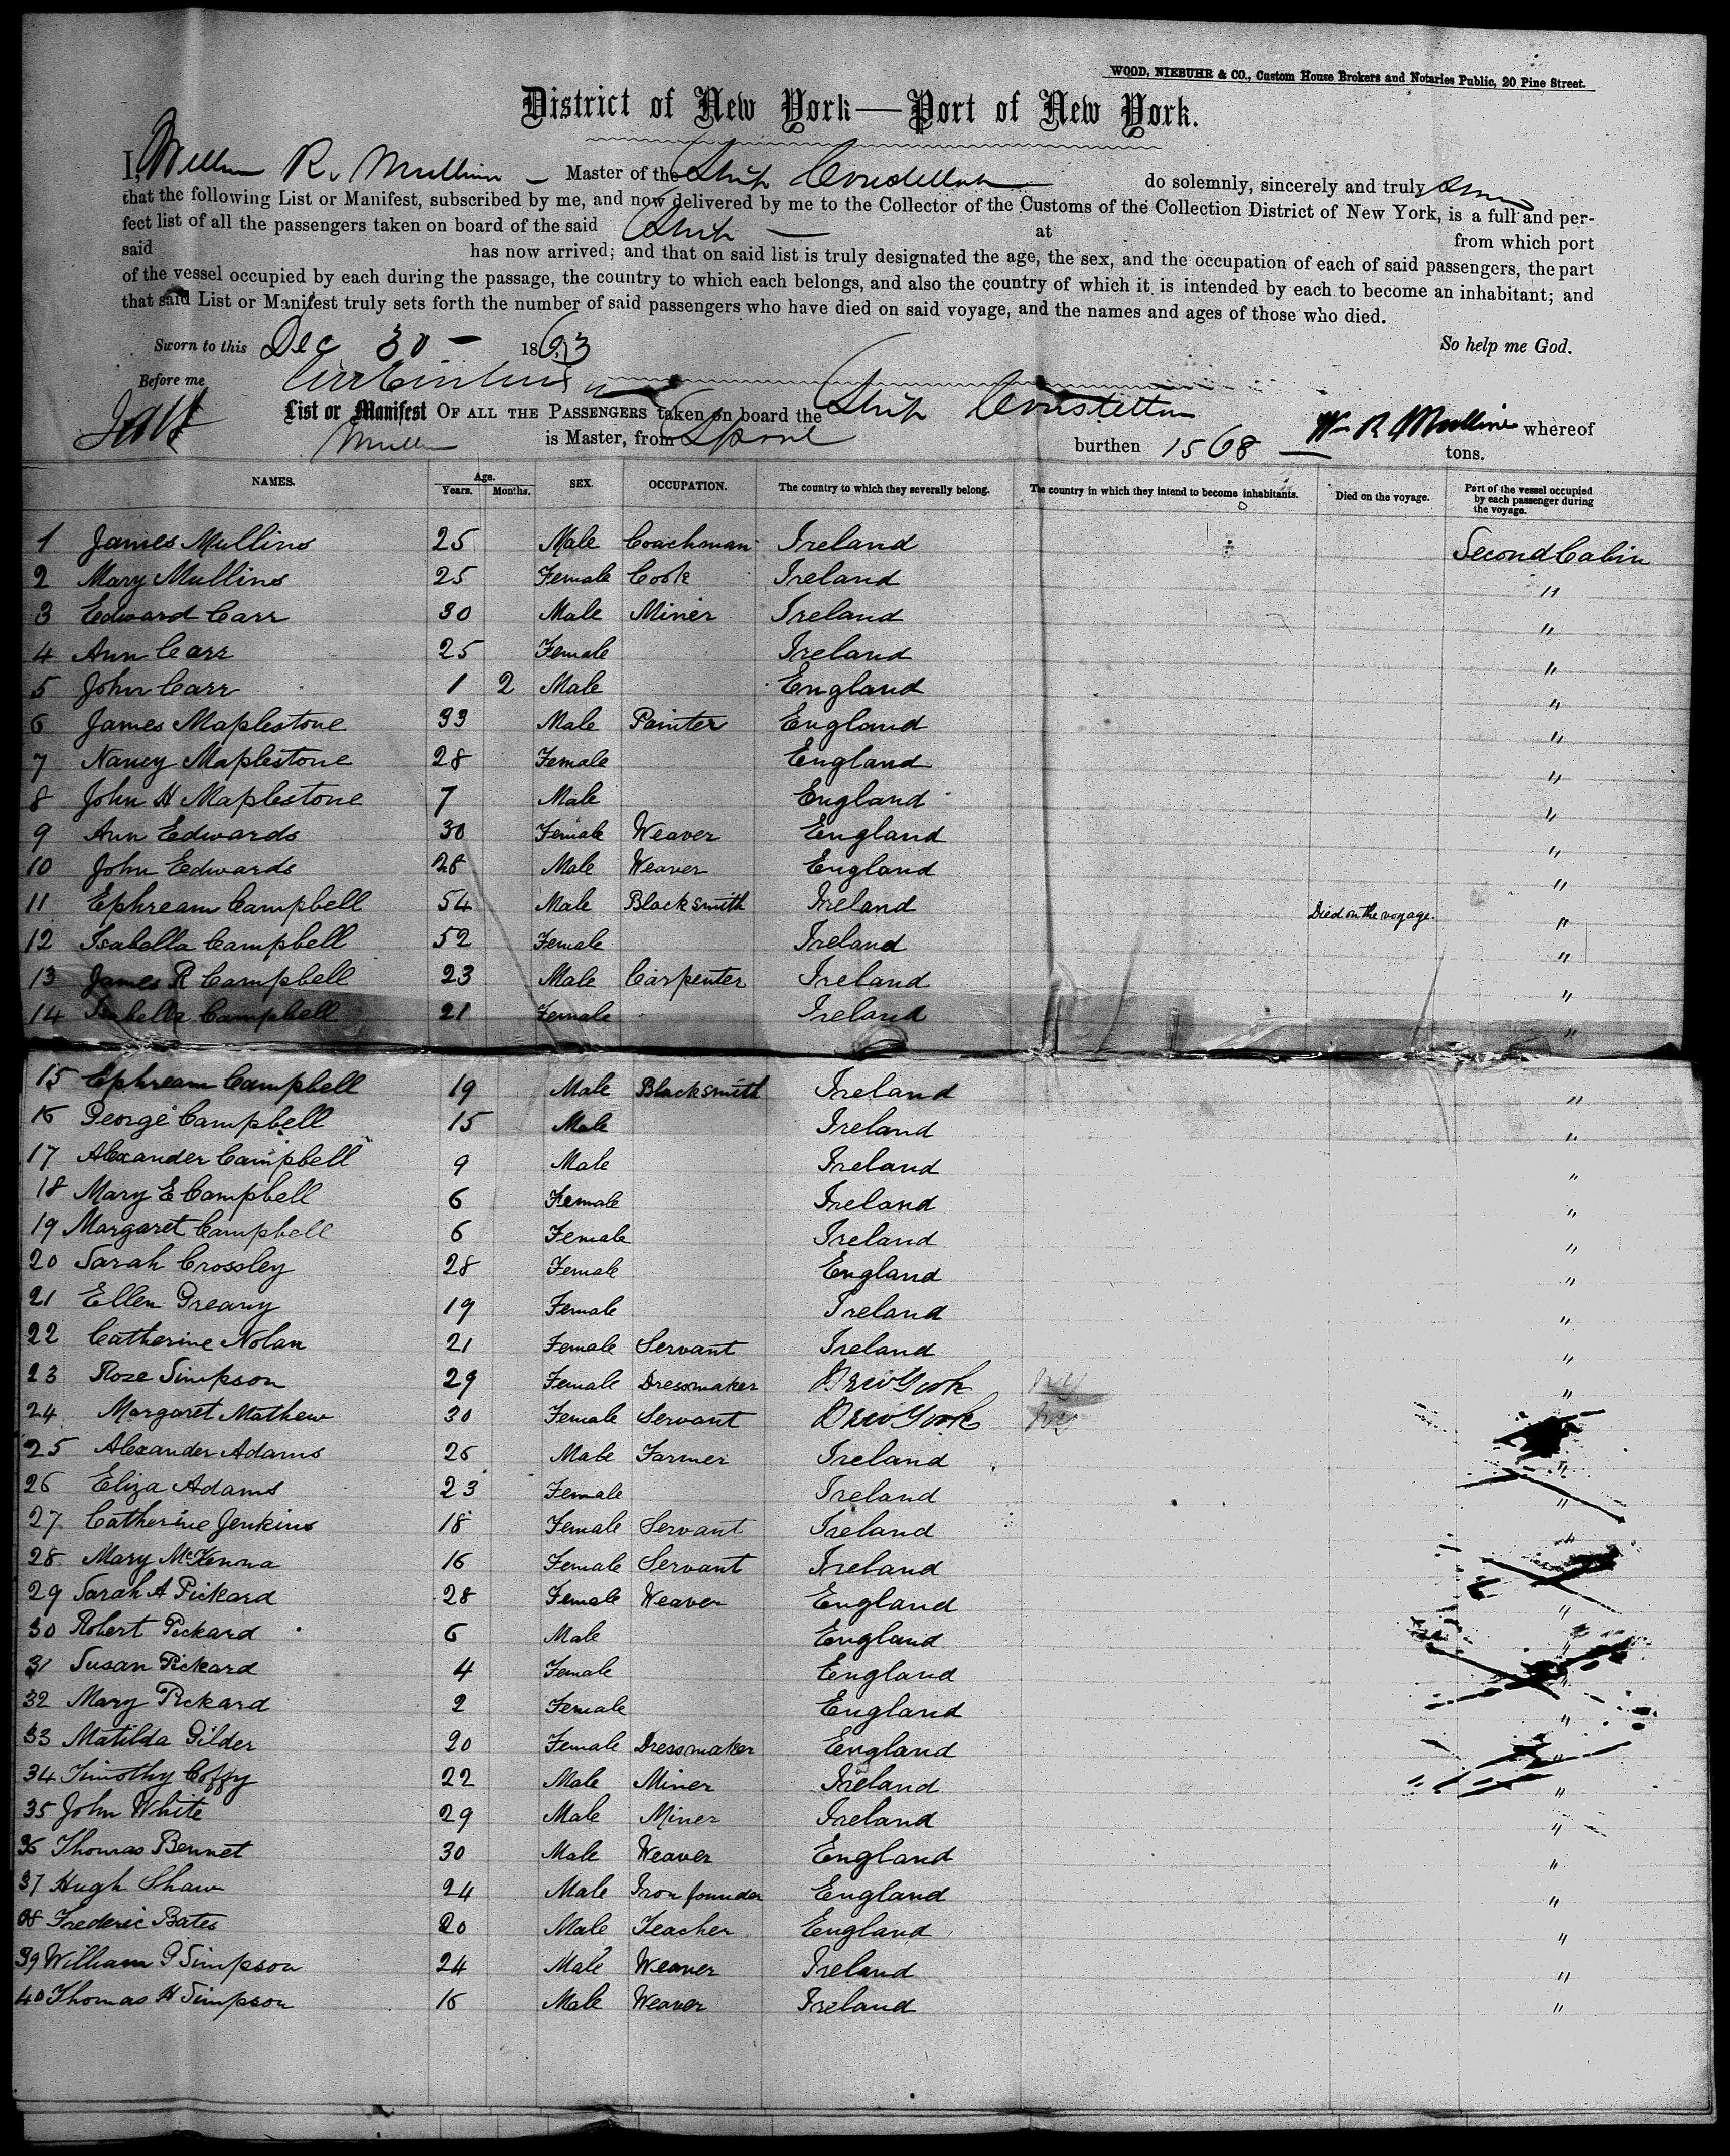 WOOD, NIEBUHR & CO., Custom House Brokers and Notaries Public, 20 Pine Street.
District of New York—Port of New York.
I, William R. Mullins — Master of the Ship Constellation do solemnly, sincerely and truly
that the following List or Manifest, subscribed by me, and now delivered by me to the Collector of the Customs of the Collection District of New York, is a full and per-
fect list of all the passengers taken on board of the said Ship — at from which port
said has now arrived; and that on said list is truly designated the age, the sex, and the occupation of each of said passengers, the part
of the vessel occupied by each during the passage, the country to which each belongs, and also the country of which it is intended by each to become an inhabitant; and
that said List or Manifest truly sets forth the number of said passengers who have died on said voyage, and the names and ages of those who died.
Sworn to this Dec 30 — 1863 So help me God.
Before me
List or Manifest OF ALL THE PASSENGERS taken on board the Ship Constellation Wm R Mullins whereof
is Master, from burthen 1568 — tons.
NAMES. Age. Years. Months. SEX. OCCUPATION. The country to which they severally belong. The country in which they intend to become inhabitants. Died on the voyage. Part of the vessel occupied by each passenger during the voyage.
1 James Mullins 25 Male Coachman Ireland Second Cabin
2 Mary Mullins 25 Female Cook Ireland "
3 Edward Carr 30 Male Miner Ireland "
4 Ann Carr 25 Female Ireland "
5 John Carr 1 2 Male England "
6 James Maplestone 33 Male Painter England "
7 Nancy Maplestone 28 Female England "
8 John H Maplestone 7 Male England "
9 Ann Edwards 30 Female Weaver England "
10 John Edwards 28 Male Weaver England "
11 Ephream Campbell 54 Male Blacksmith Ireland Died on the voyage. "
12 Isabella Campbell 52 Female Ireland "
13 James R Campbell 23 Male Carpenter Ireland "
14 Isabella Campbell 21 Female Ireland "
15 Ephream Campbell 19 Male Blacksmith Ireland "
16 George Campbell 15 Male Ireland "
17 Alexander Campbell 9 Male Ireland "
18 Mary E Campbell 6 Female Ireland "
19 Margaret Campbell 6 Female Ireland "
20 Sarah Crossley 28 Female England "
21 Ellen Greany 19 Female Ireland "
22 Catherine Nolan 21 Female Servant Ireland "
23 Rose Simpson 29 Female Dressmaker New York "
24 Margaret Mathew 30 Female Servant New York
25 Alexander Adams 26 Male Farmer Ireland "
26 Eliza Adams 23 Female Ireland "
27 Catherine Jenkins 18 Female Servant Ireland "
28 Mary McKenna 16 Female Servant Ireland
29 Sarah A Pickard 28 Female Weaver England "
30 Robert Pickard 6 Male England "
31 Susan Pickard 4 Female England "
32 Mary Pickard 2 Female England "
33 Matilda Gilder 20 Female Dressmaker England "
34 Timothy Coffy 22 Male Miner Ireland "
35 John White 29 Male Miner Ireland "
36 Thomas Bennet 30 Male Weaver England "
37 Hugh Shaw 24 Male Iron founder England "
38 Frederic Bates 20 Male Teacher England "
39 William G Simpson 24 Male Weaver Ireland "
40 Thomas H Simpson 16 Male Weaver Ireland "